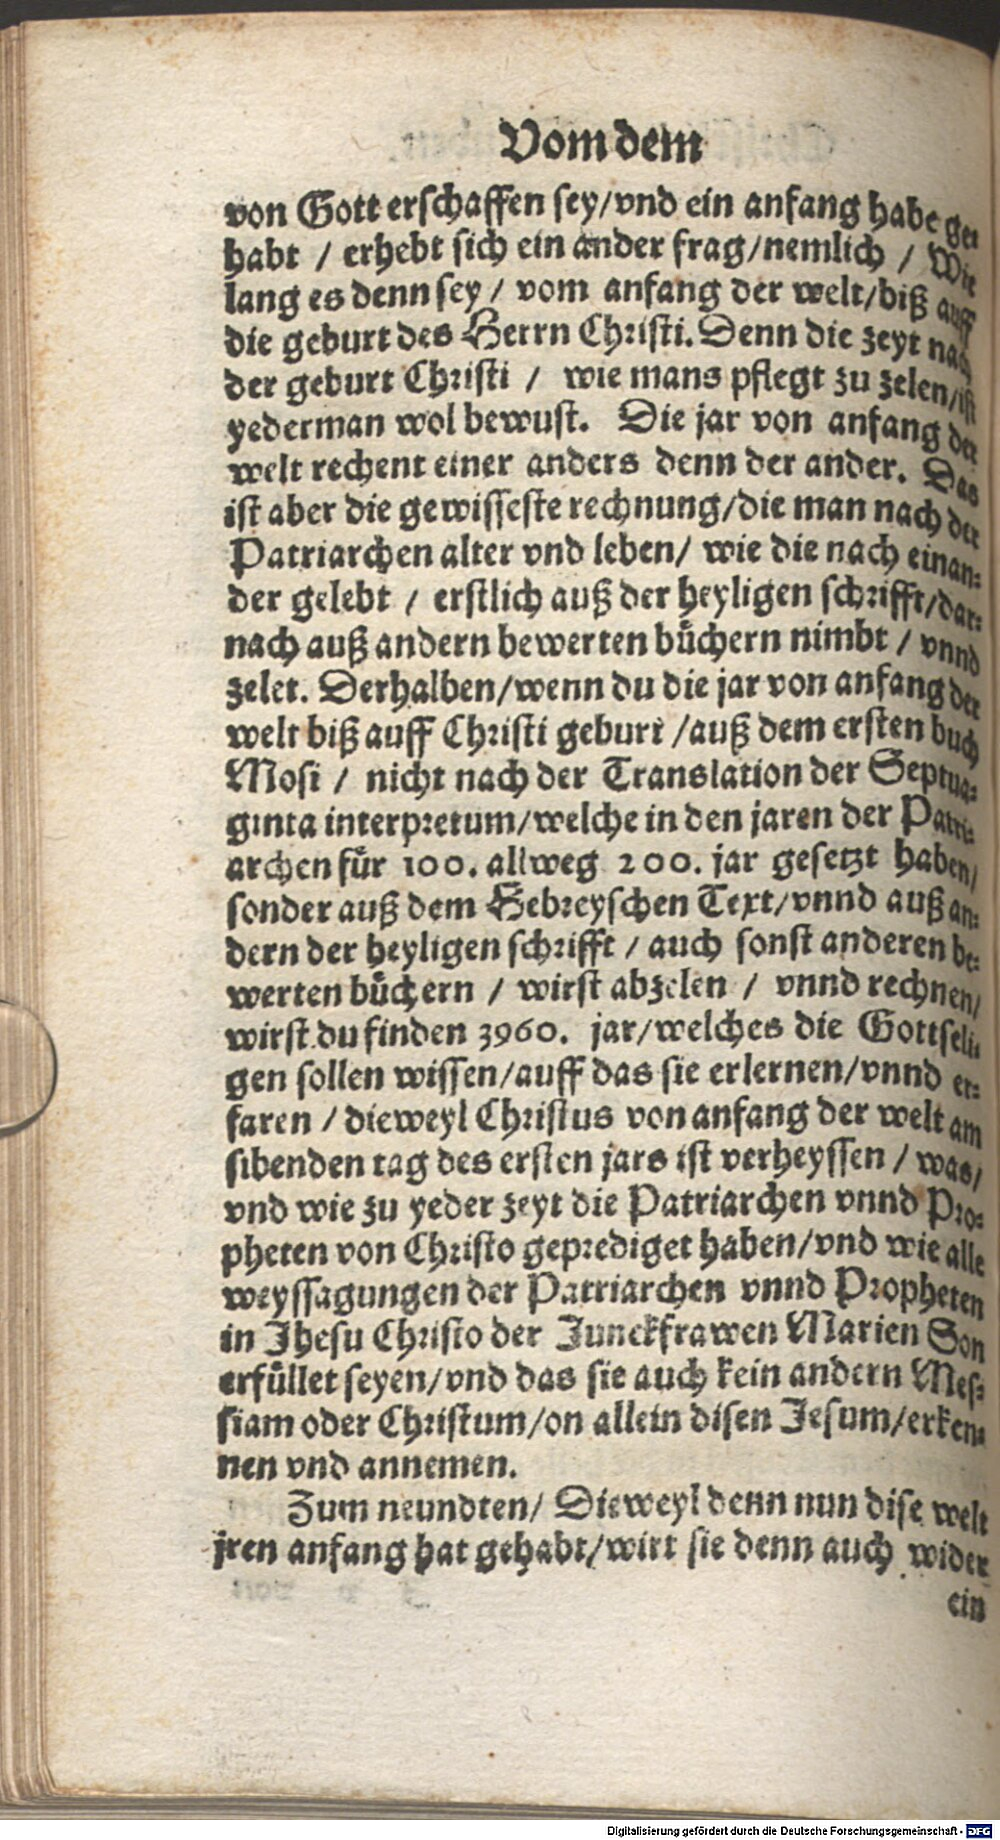 Vom dem
von Gott erschaffen sey/vnd ein anfang habe ge⸗
habt / erhebt sich ein ander frag/nemlich / Wie
lang es denn sey / vom anfang der welt/biß auff
die geburt des Herrn Christi. Denn die zeyt nach
der geburt Christi / wie mans pflegt zu zelen/ist
yederman wol bewust. Die jar von anfang der
welt rechent einer anders denn der ander. Das
ist aber die gewisseste rechnung/die man nach der
Patriarchen alter vnd leben/ wie die nach einan⸗
der gelebt / erstlich auß der heyligen schrifft/dar⸗
nach auß andern bewerten bůchern nimbt / vnnd
zelet. Derhalben/wenn du die jar von anfang der
welt biß auff Christi geburt /auß dem ersten buch
Mosi / nicht nach der Translation der Septua⸗
ginta interpretum/welche in den jaren der Patri⸗
archen für 100. allweg 200. jar gesetzt haben/
sonder auß dem Hebreyschen Text/vnnd auß an⸗
dern der heyligen schrifft / auch sonst anderen be⸗
werten bůchern / wirst abzelen / vnnd rechnen/
wirst du finden 3960. jar/welches die Gottseli⸗
gen sollen wissen/auff das sie erlernen/vnnd er⸗
faren / dieweyl Christus von anfang der welt am
sibenden tag des ersten jars ist verheyssen / was/
vnd wie zu yeder zeyt die Patriarchen vnnd Pro⸗
pheten von Christo geprediget haben/vnd wie alle
weyssagungen der Patriarchen vnnd Propheten
in Jhesu Christo der Junckfrawen Marien Son
erfüllet seyen/vnd das sie auch kein andern Mes⸗
siam oder Christum/on allein disen Jesum/erken⸗
nen vnd annemen.
Zum neundten/ Dieweyl denn nun dise welt
jren anfang hat gehabt/wirt sie denn auch wider
ein
Digitalisierung gefördert durch die Deutsche Forschungsgemeinschaft - DFG